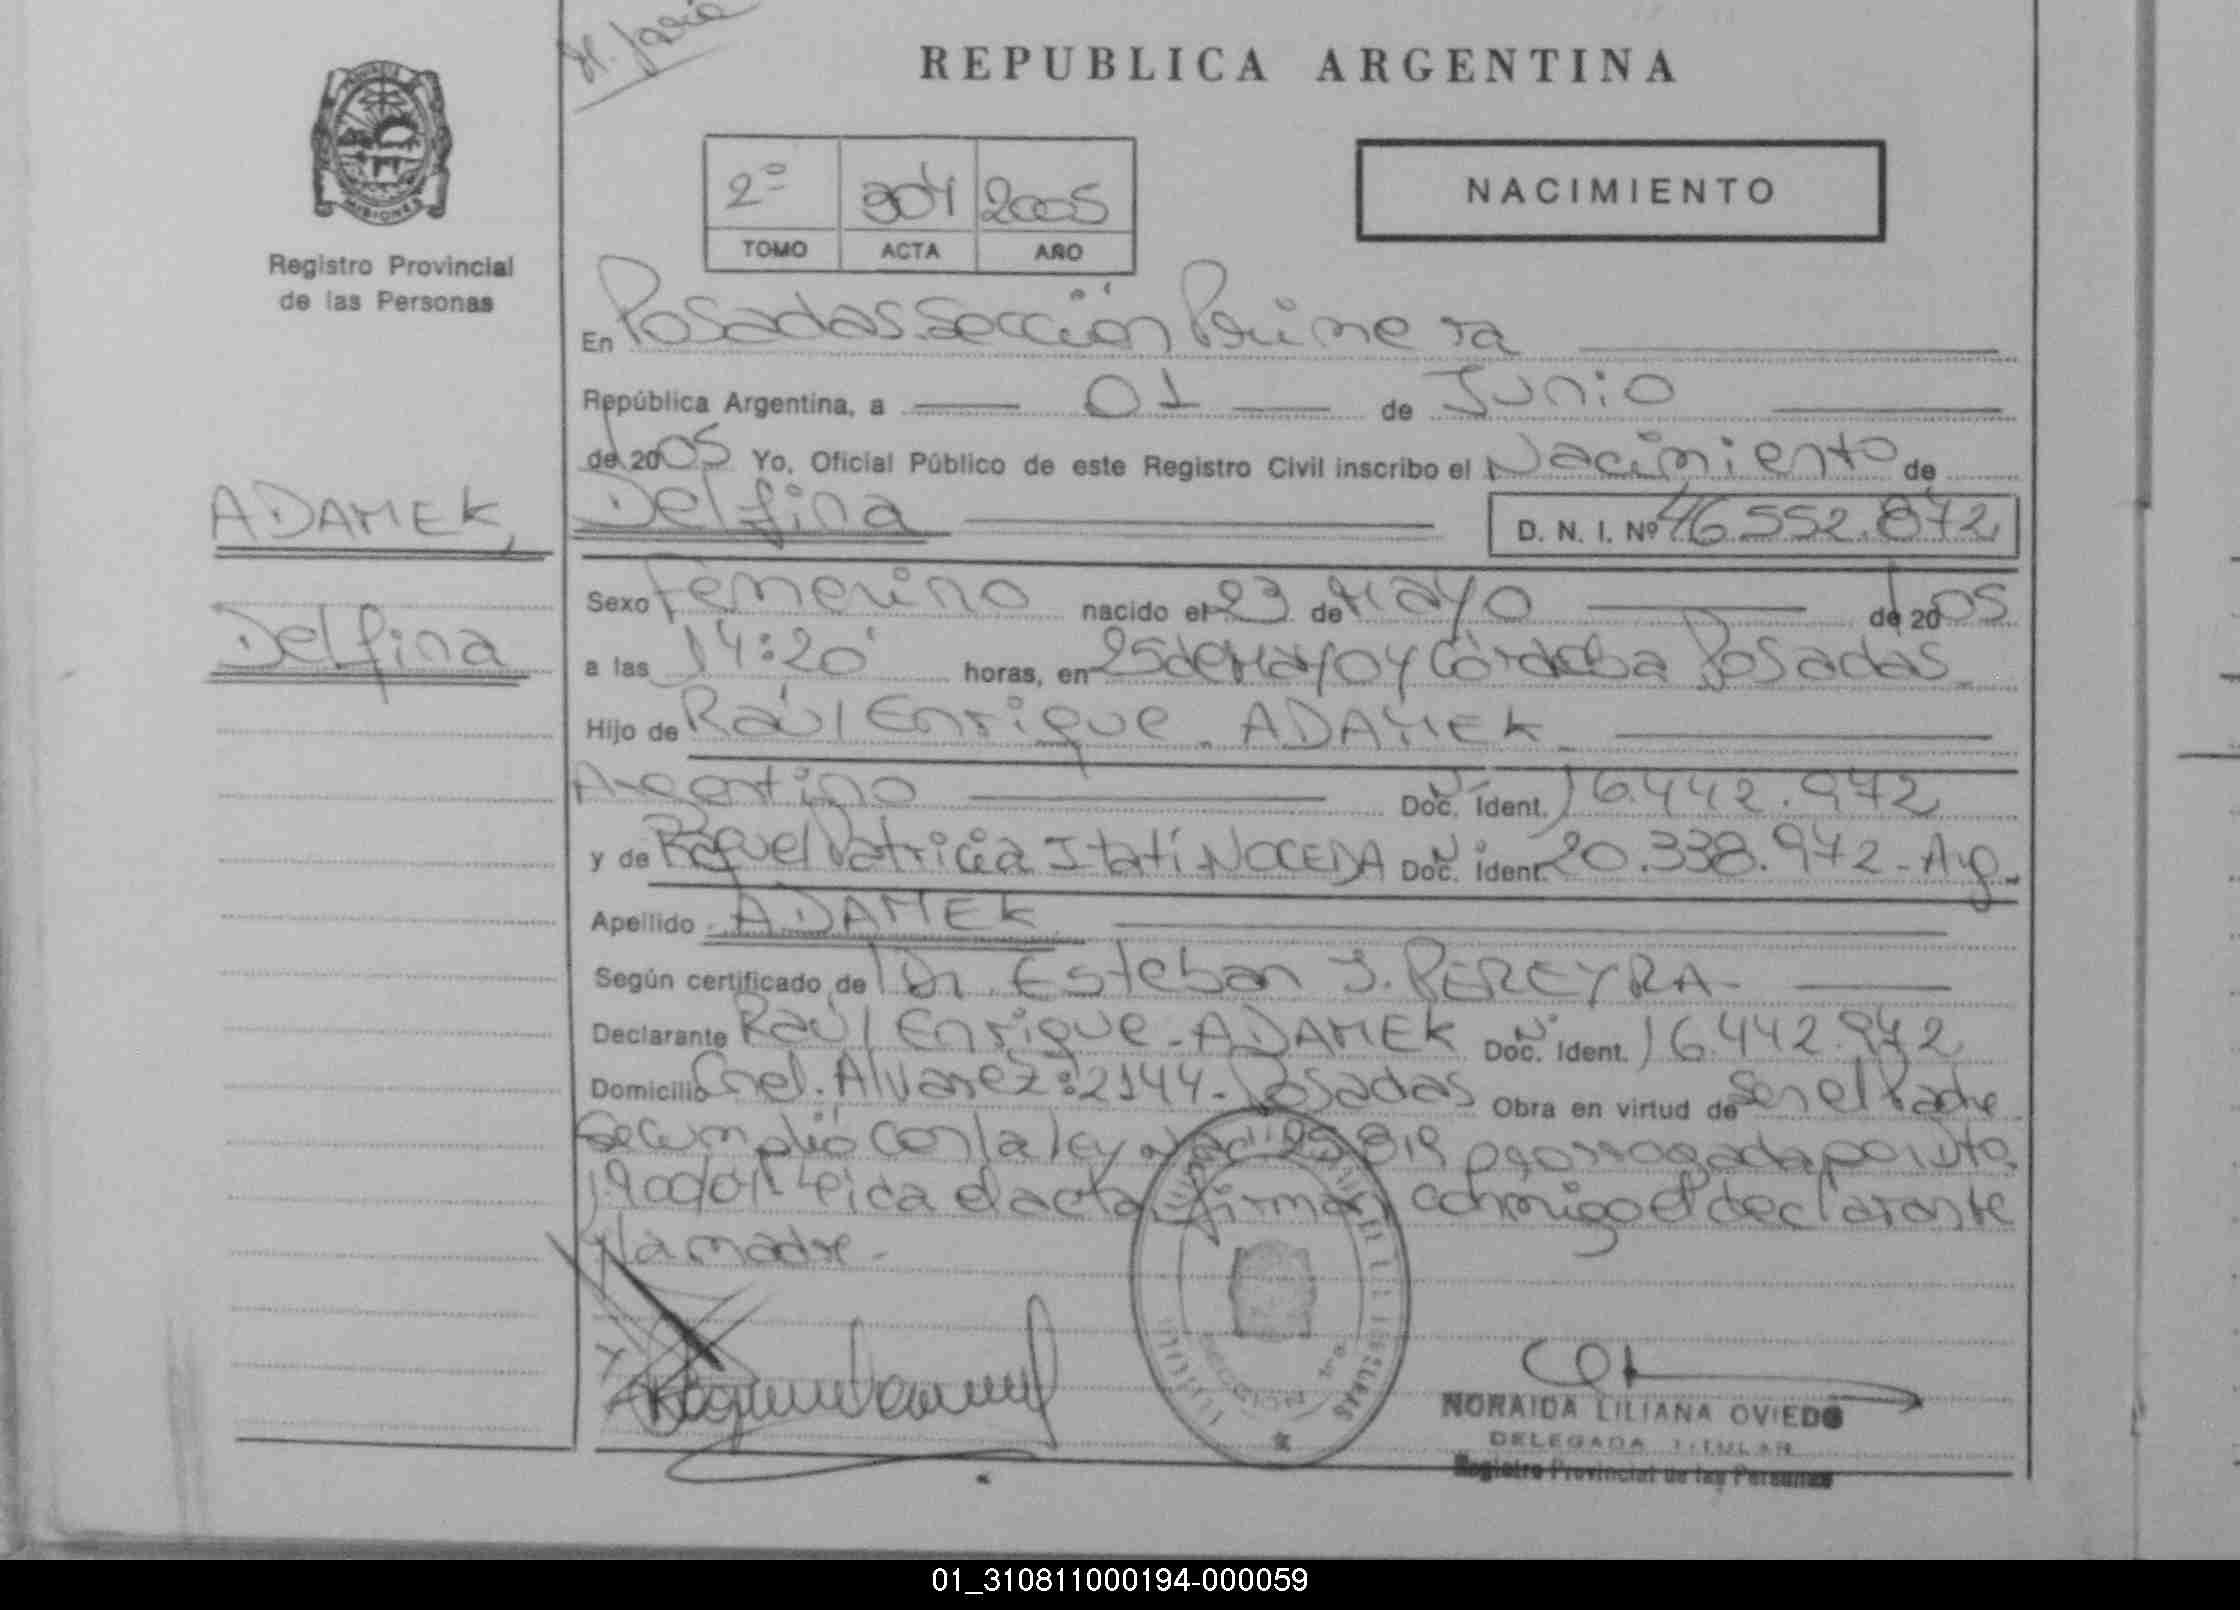 REPUBLICA ARGENTINA
MISIONES
Registro Provincial
de las Personas
2º 304 2005
TOMO ACTA AÑO
NACIMIENTO
En Posadas Sección Primera
República Argentina, a 01 de Junio
de 2005 Yo, Oficial Público de este Registro Civil inscribo el Nacimiento de
Delfina
D. N. I. Nº 46.552.872
ADAMEK,
Delfina
Sexo Femenino nacido el 23 de Mayo de 2005
a las 14:20 horas, en 25 de Mayo y Córdoba Posadas
Hijo de Raúl Enrique ADAMEK
Argentino Doc. Ident. 16.442.972
y de Raquel Patricia Itatí NOCEDA Doc. Ident. 20.338.972 - Arg.
Apellido ADAMEK
Según certificado de Dr. Esteban J. PEREYRA -
Declarante Raúl Enrique - ADAMEK Doc. Ident. 16.442.972
Domicilio Cnel. Alvarez: 2144 - Posadas Obra en virtud de Ser el Padre
Se cumplió con la ley Nac. 25.819 prorrogada por Dto.
Leida el acta, firman conmigo el declarante
y la madre -
SECCION 1ra.
NORAIDA LILIANA OVIEDO
DELEGADA TITULAR
Registro Provincial de las Personas
01_310811000194-000059